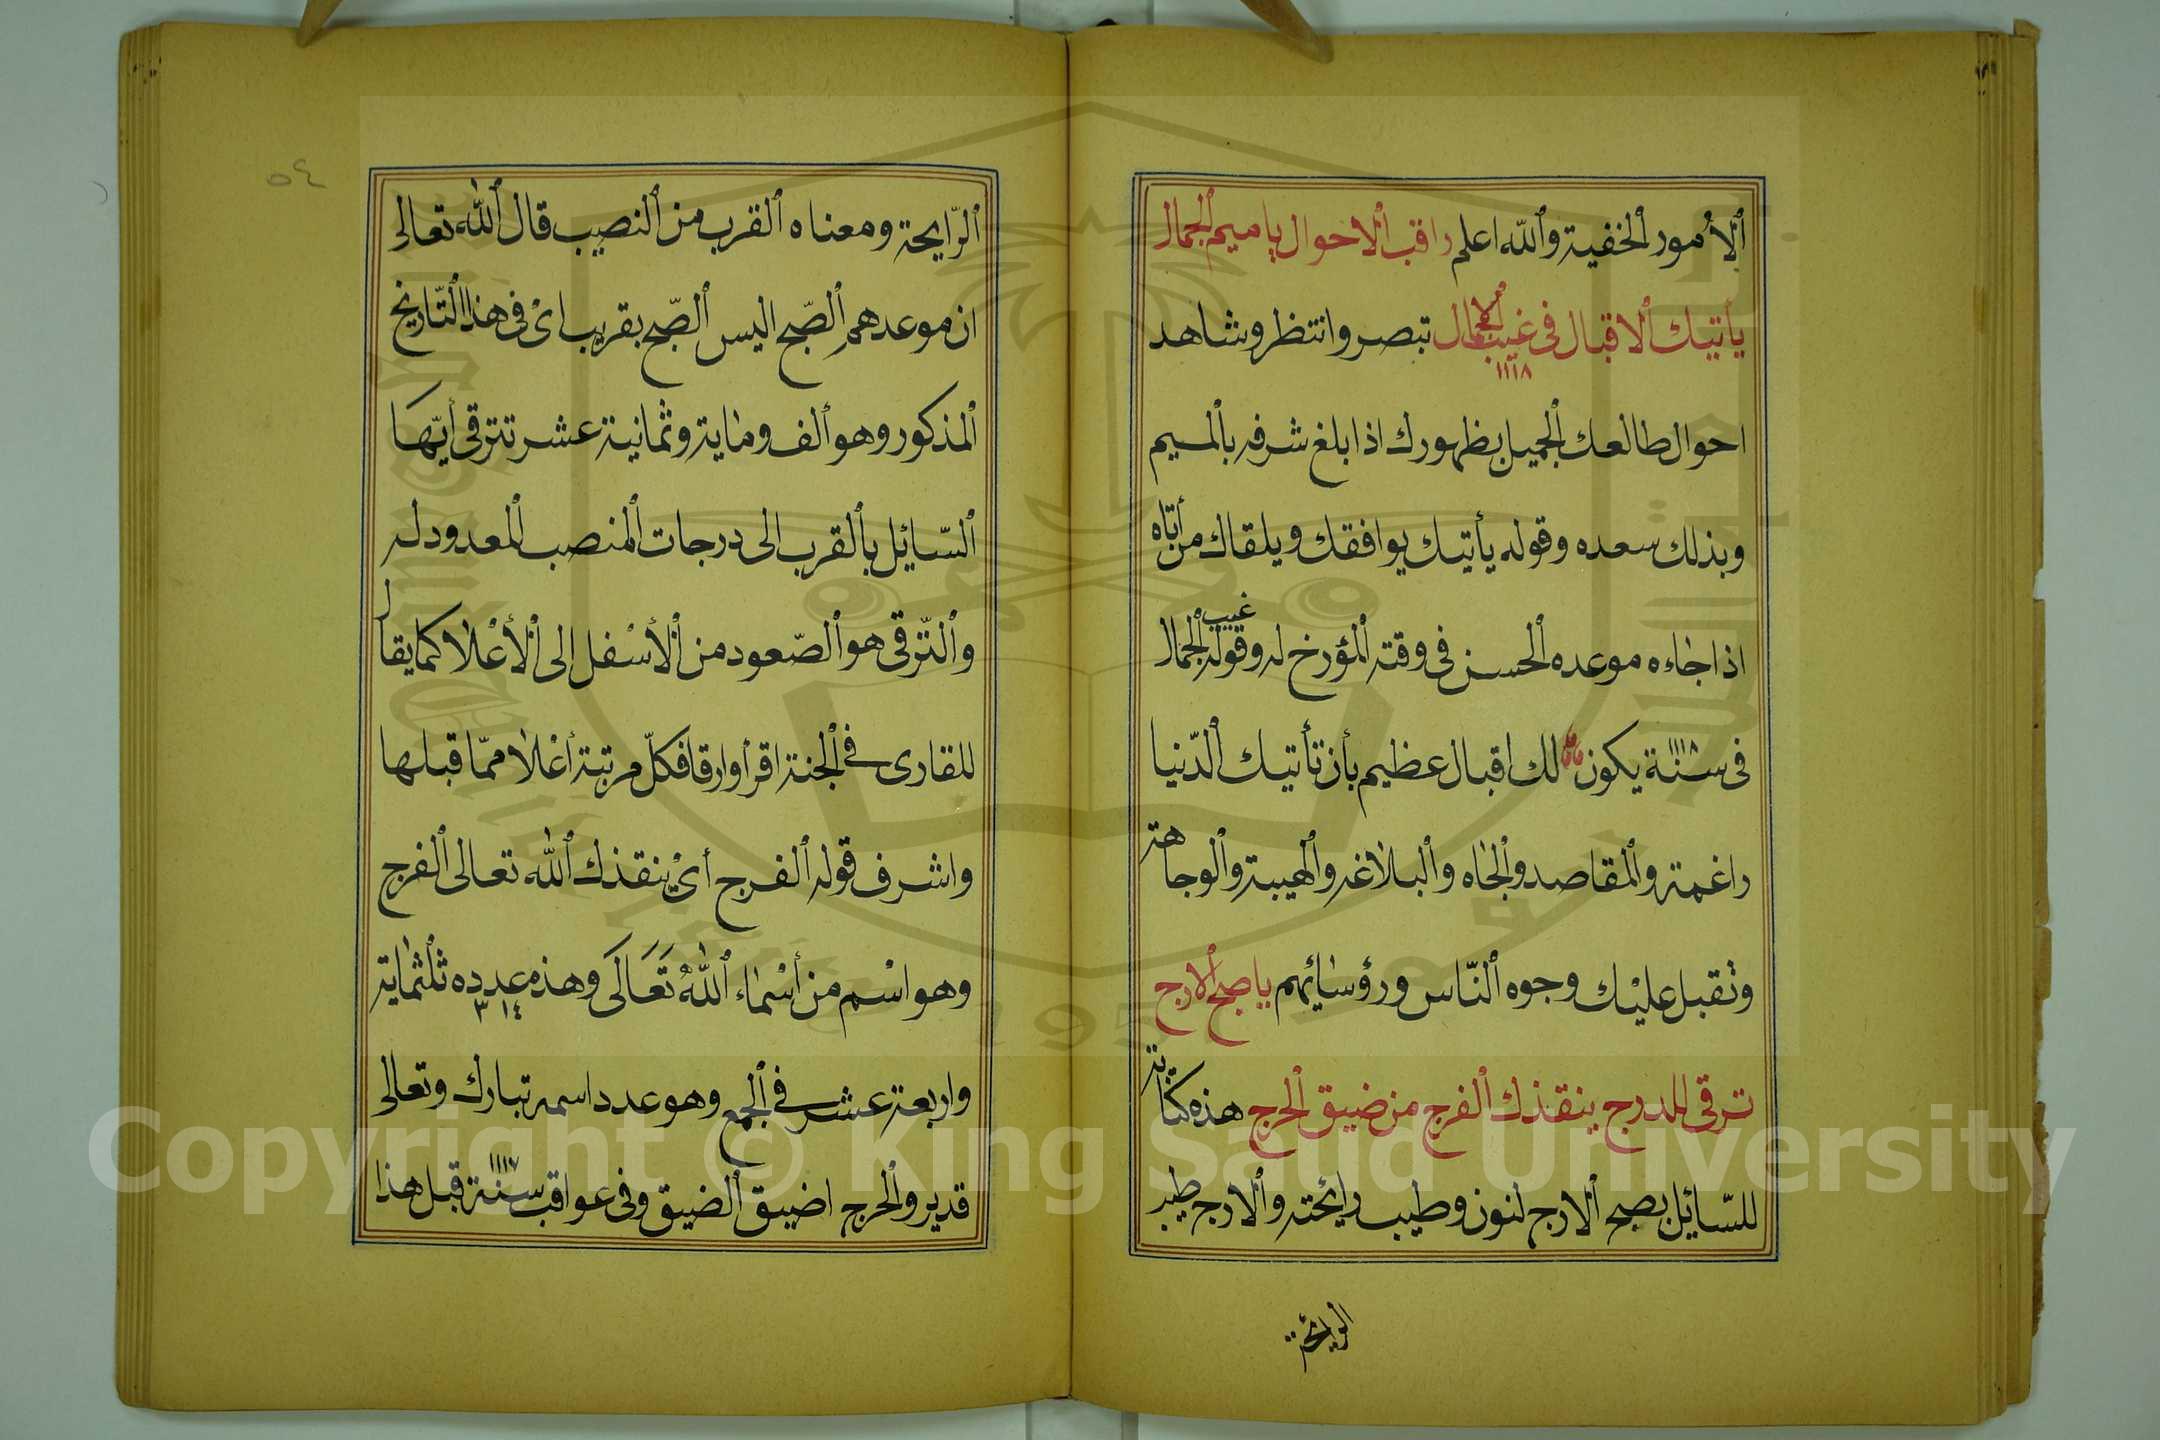 ٱلأمور ٱلخفية وٱلله اعلم راقب ٱلاحوال ياميم ٱلجمال
يأتيك ٱلاقبال فى غيب ٱلجمال تبصر وانتظر وشاهد
١١١٨
احوال طالعك ٱلجميل بظهورك اذا بلغ شرفه بالميم
وبذلك سعده وقوله يأتيك يوافقك ويلقاك من أتاه
اذا جاءه موعده ٱلحسن فى وقته ٱلمؤرخ له وقوله غيب ٱلجمال
فى سنة ١١١٨ يكون لك اقبال عظيم بأن تأتيك ٱلدّنيا
راغمة وٱلمقاصد وٱلجاه وٱلبلاغه وٱلهيبة وٱلوجاهة
وتقبل عليك وجوه ٱلنّاس ورؤسائهم ياصبح ٱلارج
ترقى للدرج ينقذك ٱلفرج من ضيق ٱلحرج هذه كناية
للسّائل بصبح ٱلارج لنون وطيب رائحته وٱلارج طيب
الرايحة
ٱلرّايحة ومعناه ٱلقرب من ٱلنصيب قال ٱلله تعالى
ان موعدهم ٱلصّبح اليس ٱلصّبح بقريب اىْ فى هذا ٱلتّاريخ
ٱلمذكور وهو ألف وماية وثمانية عشر تترقى أيّها
ٱلسّائل بٱلقرب الى درجات ٱلمنصب ٱلمعدود له
وٱلتّرقى هو ٱلصّعود من ٱلأسْفل الى ٱلأعْلا كما يقال
للقارى فى ٱلجنة اقرأ وارقا فكلّ مرتبة أعْلا ممّا قبلها
واشرف قوله ٱلفرج أىْ ينقذك ٱلله تعالى ٱلفرج
وهو اسْم من أسْماء ٱللهُ تَعَالَى وهذه عدده ثلثماية
٣١٤
واربعة عشر فى ٱلجمع وهو عدد اسمه تبارك وتعالى
قدير وٱلحرج اضيق ٱلضيق وفى عواقب سنة ١١١٧ قبل هذا
٥٤
Copyright © King Saud University
1957